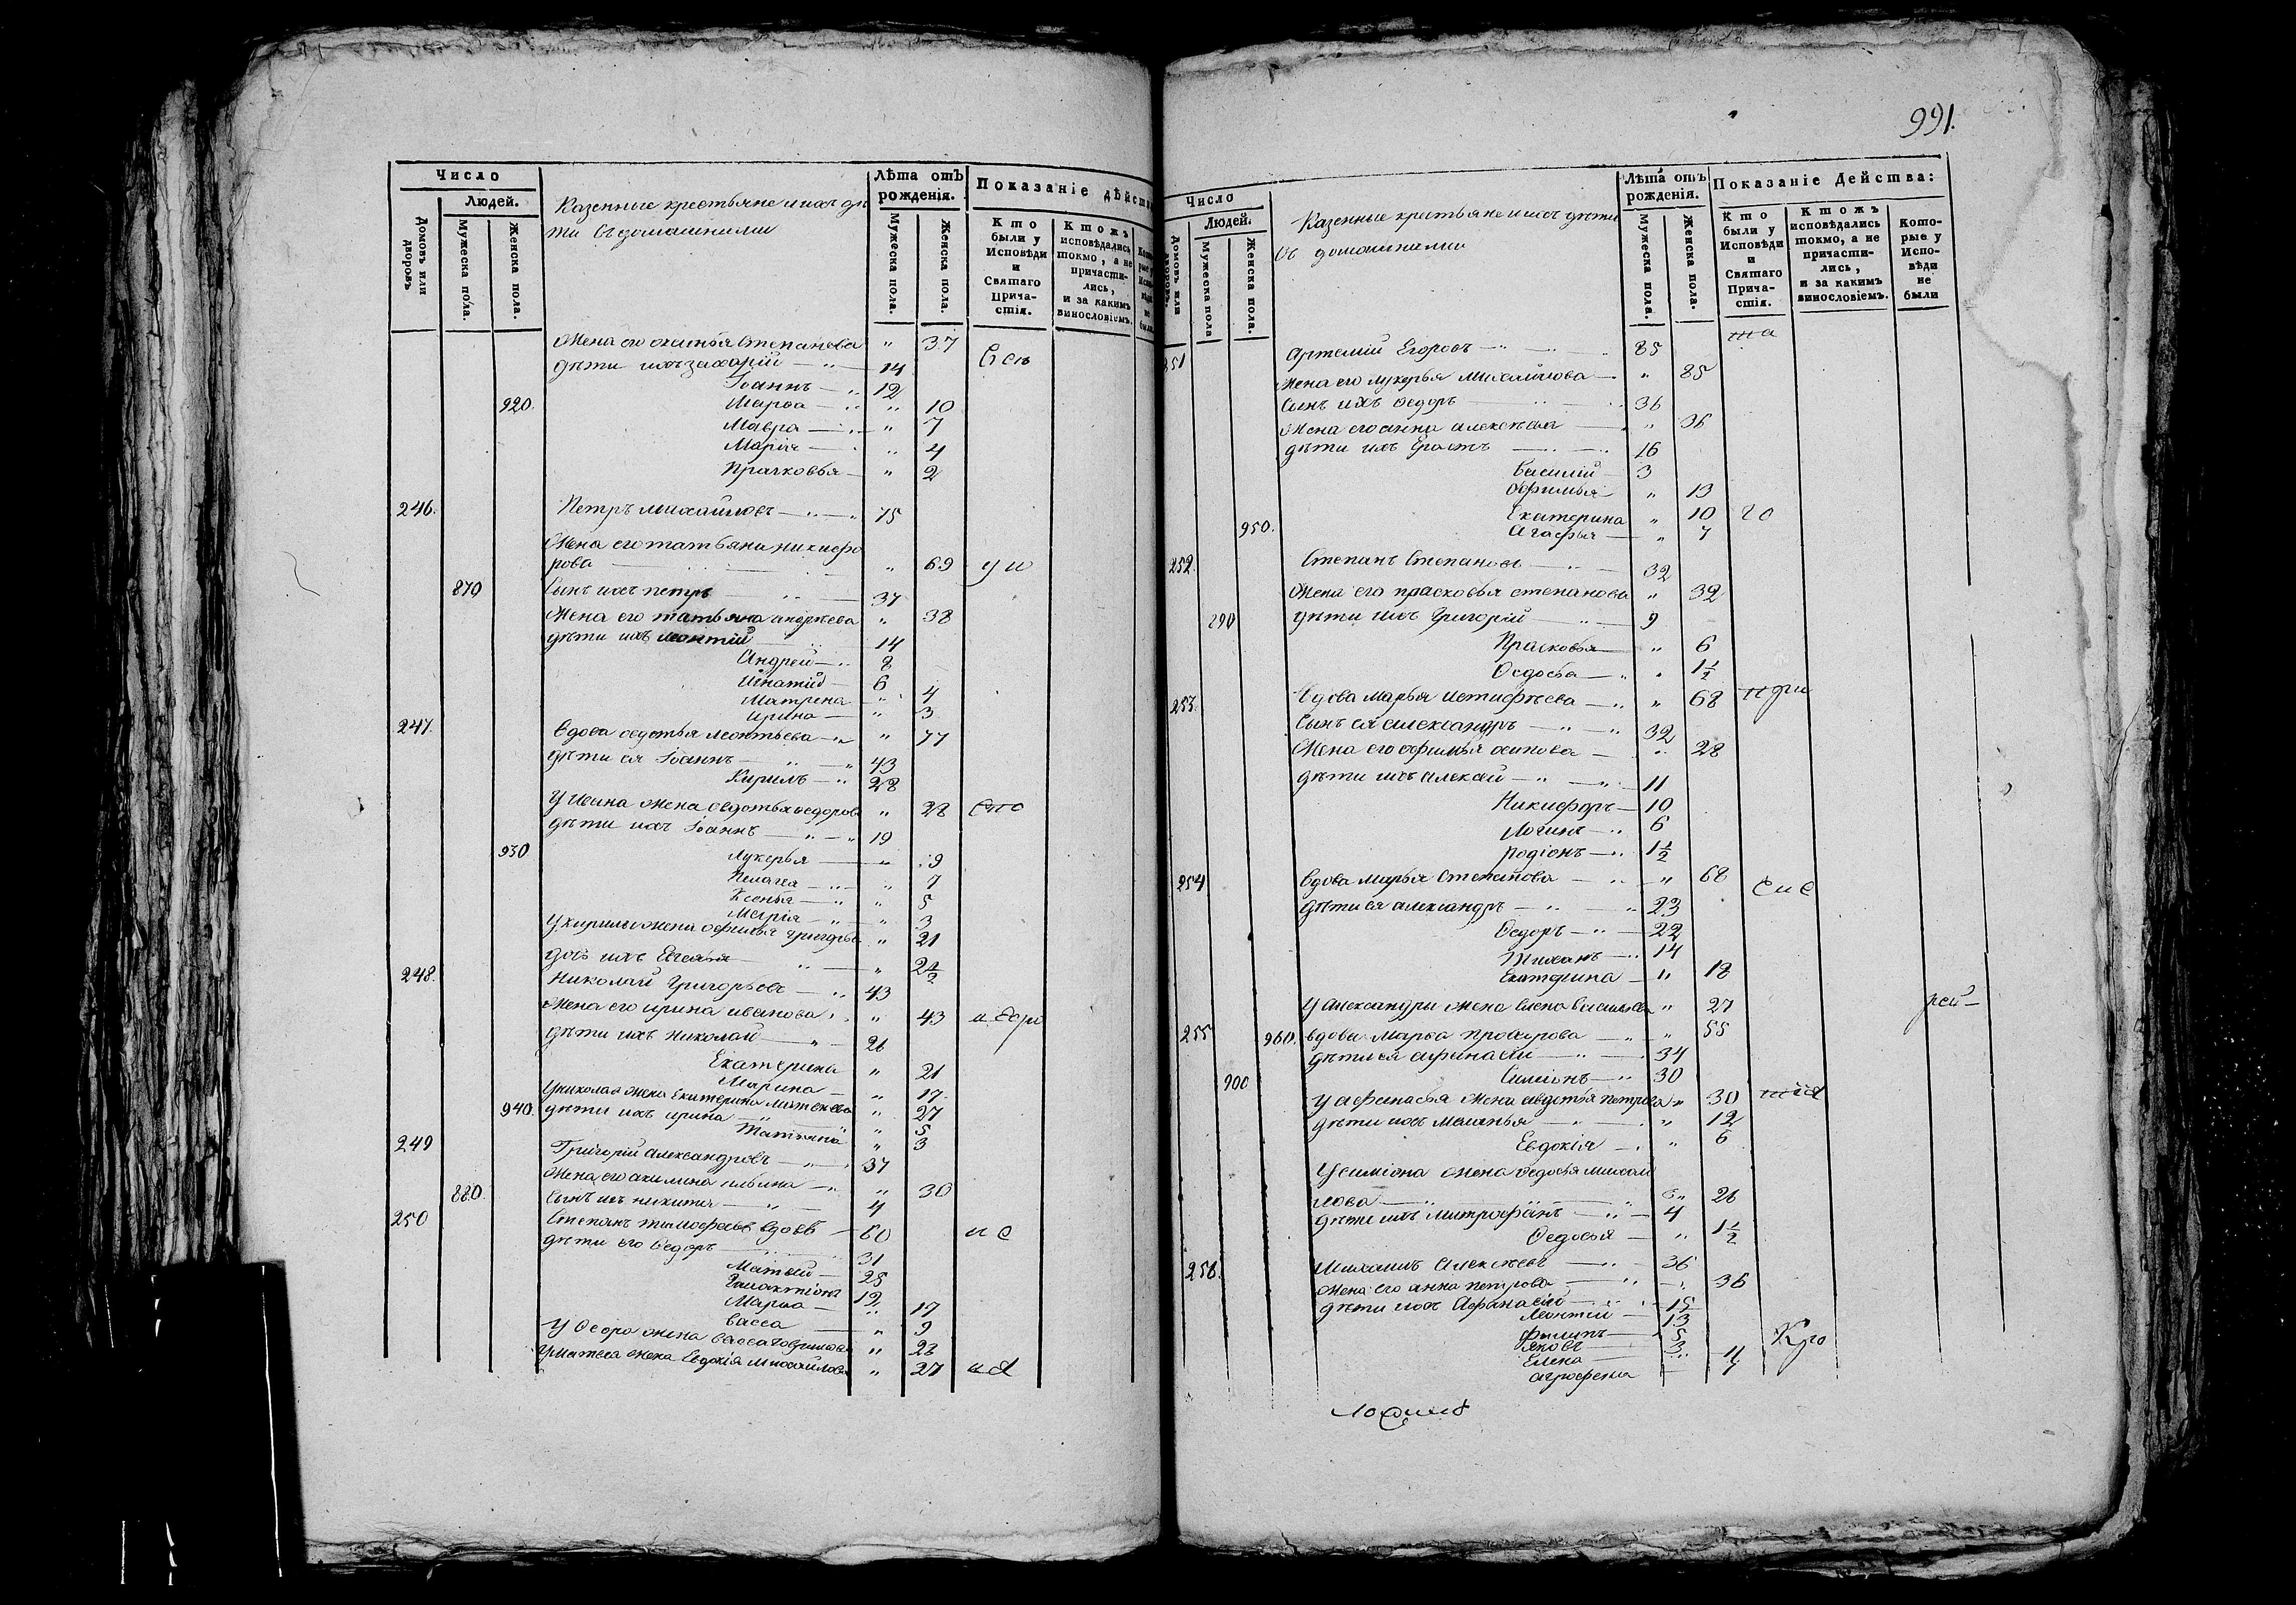 Число
Людей.
Домовъ или дворовъ
Мужеска пола.
Женска пола.
Казенные крестьяне и ихъ дѣ
ти съ домашними
Лѣта отъ рожденія.
Мужеска пола.
Женска пола.
Показаніе дѣйств
Кто были у Исповѣди и Святаго Прича-стія.
Ктожъ исповѣдались токмо, а не причасти-лись, и за какимъ винословіемъ.
Жена его Степанова " 37
дѣти ихъ Захарій 14
Іоаннъ 12
920. Марѳа " 10
Мавра " 7
Марія " 4
Прасковья " 2
246. Петръ Михайловъ 75
Жена его татьяна никифо
рова " 69
870 Сынъ ихъ петръ 37
Жена его татьяна андреева " 38
дѣти ихъ леонтій 14
Андрей 8
Игнатій 6
Матрена " 4
ирина " 3
247. Вдова авдотья Леонтьева " 77
дѣти ея Іоаннъ 43
Кирилъ 28
У Ивана жена авдотья ѳедорова " 28
дѣти ихъ Іоаннъ 19
930 Лукерья " 9
Пелагея " 7
Ксенья " 5
Марія " 3
У кирилы жена афимья григорьева " 21
дочь ихъ " 2½
248. Николай Григорьевъ 43
Жена его ирина иванова " 43
дѣти ихъ Николай 26
Екатерина " 21
Марина " 17
У николая жена Екатерина Матвеева " 27
940. дѣти ихъ ирина " 5
Татьяна " 3
249 Григорій Александровъ 37
Жена его акилина ильина " 30
880. Сынъ ихъ никита 4
250 Степанъ тимофеевъ вдовъ 60
дѣти его Ѳедоръ 31
Матвей 25
Галактіонъ 12
Марѳа " 17
Васса " 9
У Ѳедора жена Васса гаврилова " 28
У Матвея жена Евдокія михайлова " 27
991.
Число
Людей.
Домовъ или дворовъ.
Мужеска пола
Женска пола.
Казенные крестьяне и ихъ дѣти
съ домашними
Лѣта отъ рожденія.
Мужеска пола.
Женска пола.
Показаніе Действа:
Кто были у Исповѣди и Святаго Прича-стія.
Ктожъ исповѣдались токмо, а не причасти-лись, и за какимъ винословіемъ.
Кото-рые у Испо-вѣди не были
251 Артемій Егоровъ 85
Жена его лукерья Михайлова " 85
Сынъ ихъ ѳедоръ 36
Жена его анна алексѣева " 36
дѣти ихъ Ерастъ 16
Василій 3
Афимья " 13
Екатерина " 10 го
950. Агафья " 7
252. Степанъ Степановъ 32
Жена его прасковья степанова " 32
890 дѣти ихъ Григорій 9
Прасковья " 6
Ѳедосья " 1½
253. Вдова Марья " 68
Сынъ ея александръ 32
Жена его афимья осипова " 28
дѣти ихъ алексай 11
Никифоръ 10
Логинъ 6
родіонъ 1½
254 Вдова Марья Степанова " 68
дѣти ея александръ 23
Ѳедоръ 22
Тихонъ 14
Екатерина " 18
У Александры жена Елена Васильева " 27
255 960. вдова Марѳа Прохорова " 55
дѣти ея афанасій 34
900 Симіонъ 30
У афанасья жена авдотья петрова " 30
дѣти ихъ Меланья " 12
Евдокія " 6
У симіона жена ѳедосья михаи
лова " 26
дѣти ихъ Митрофанъ 4
Ѳедосья " 1½
256. Михаилъ Алексѣевъ 36
жена его анна петрова 36
дѣти ихъ Афанасій 15
Леонтій 13
филипъ 5
яковъ 3
Елена " 4
аграфена